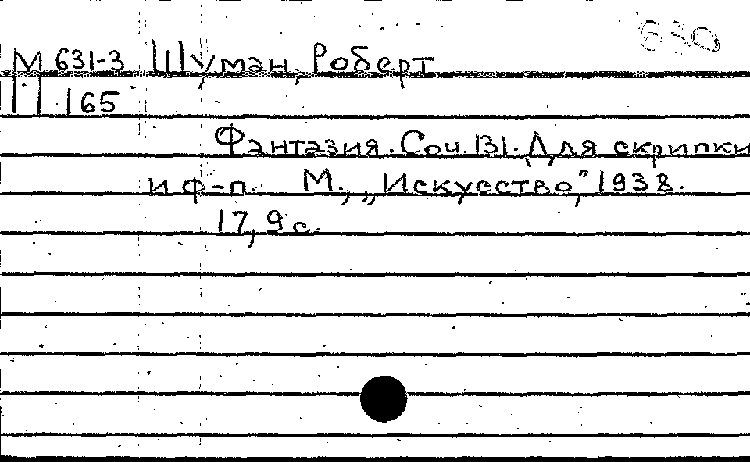 630
М 631-3 Шуман, Роберт
165
Фантазия. Соч. 131. Для скрипки
и ф-п. М., „Искусство," 1938.
17, 9 с.